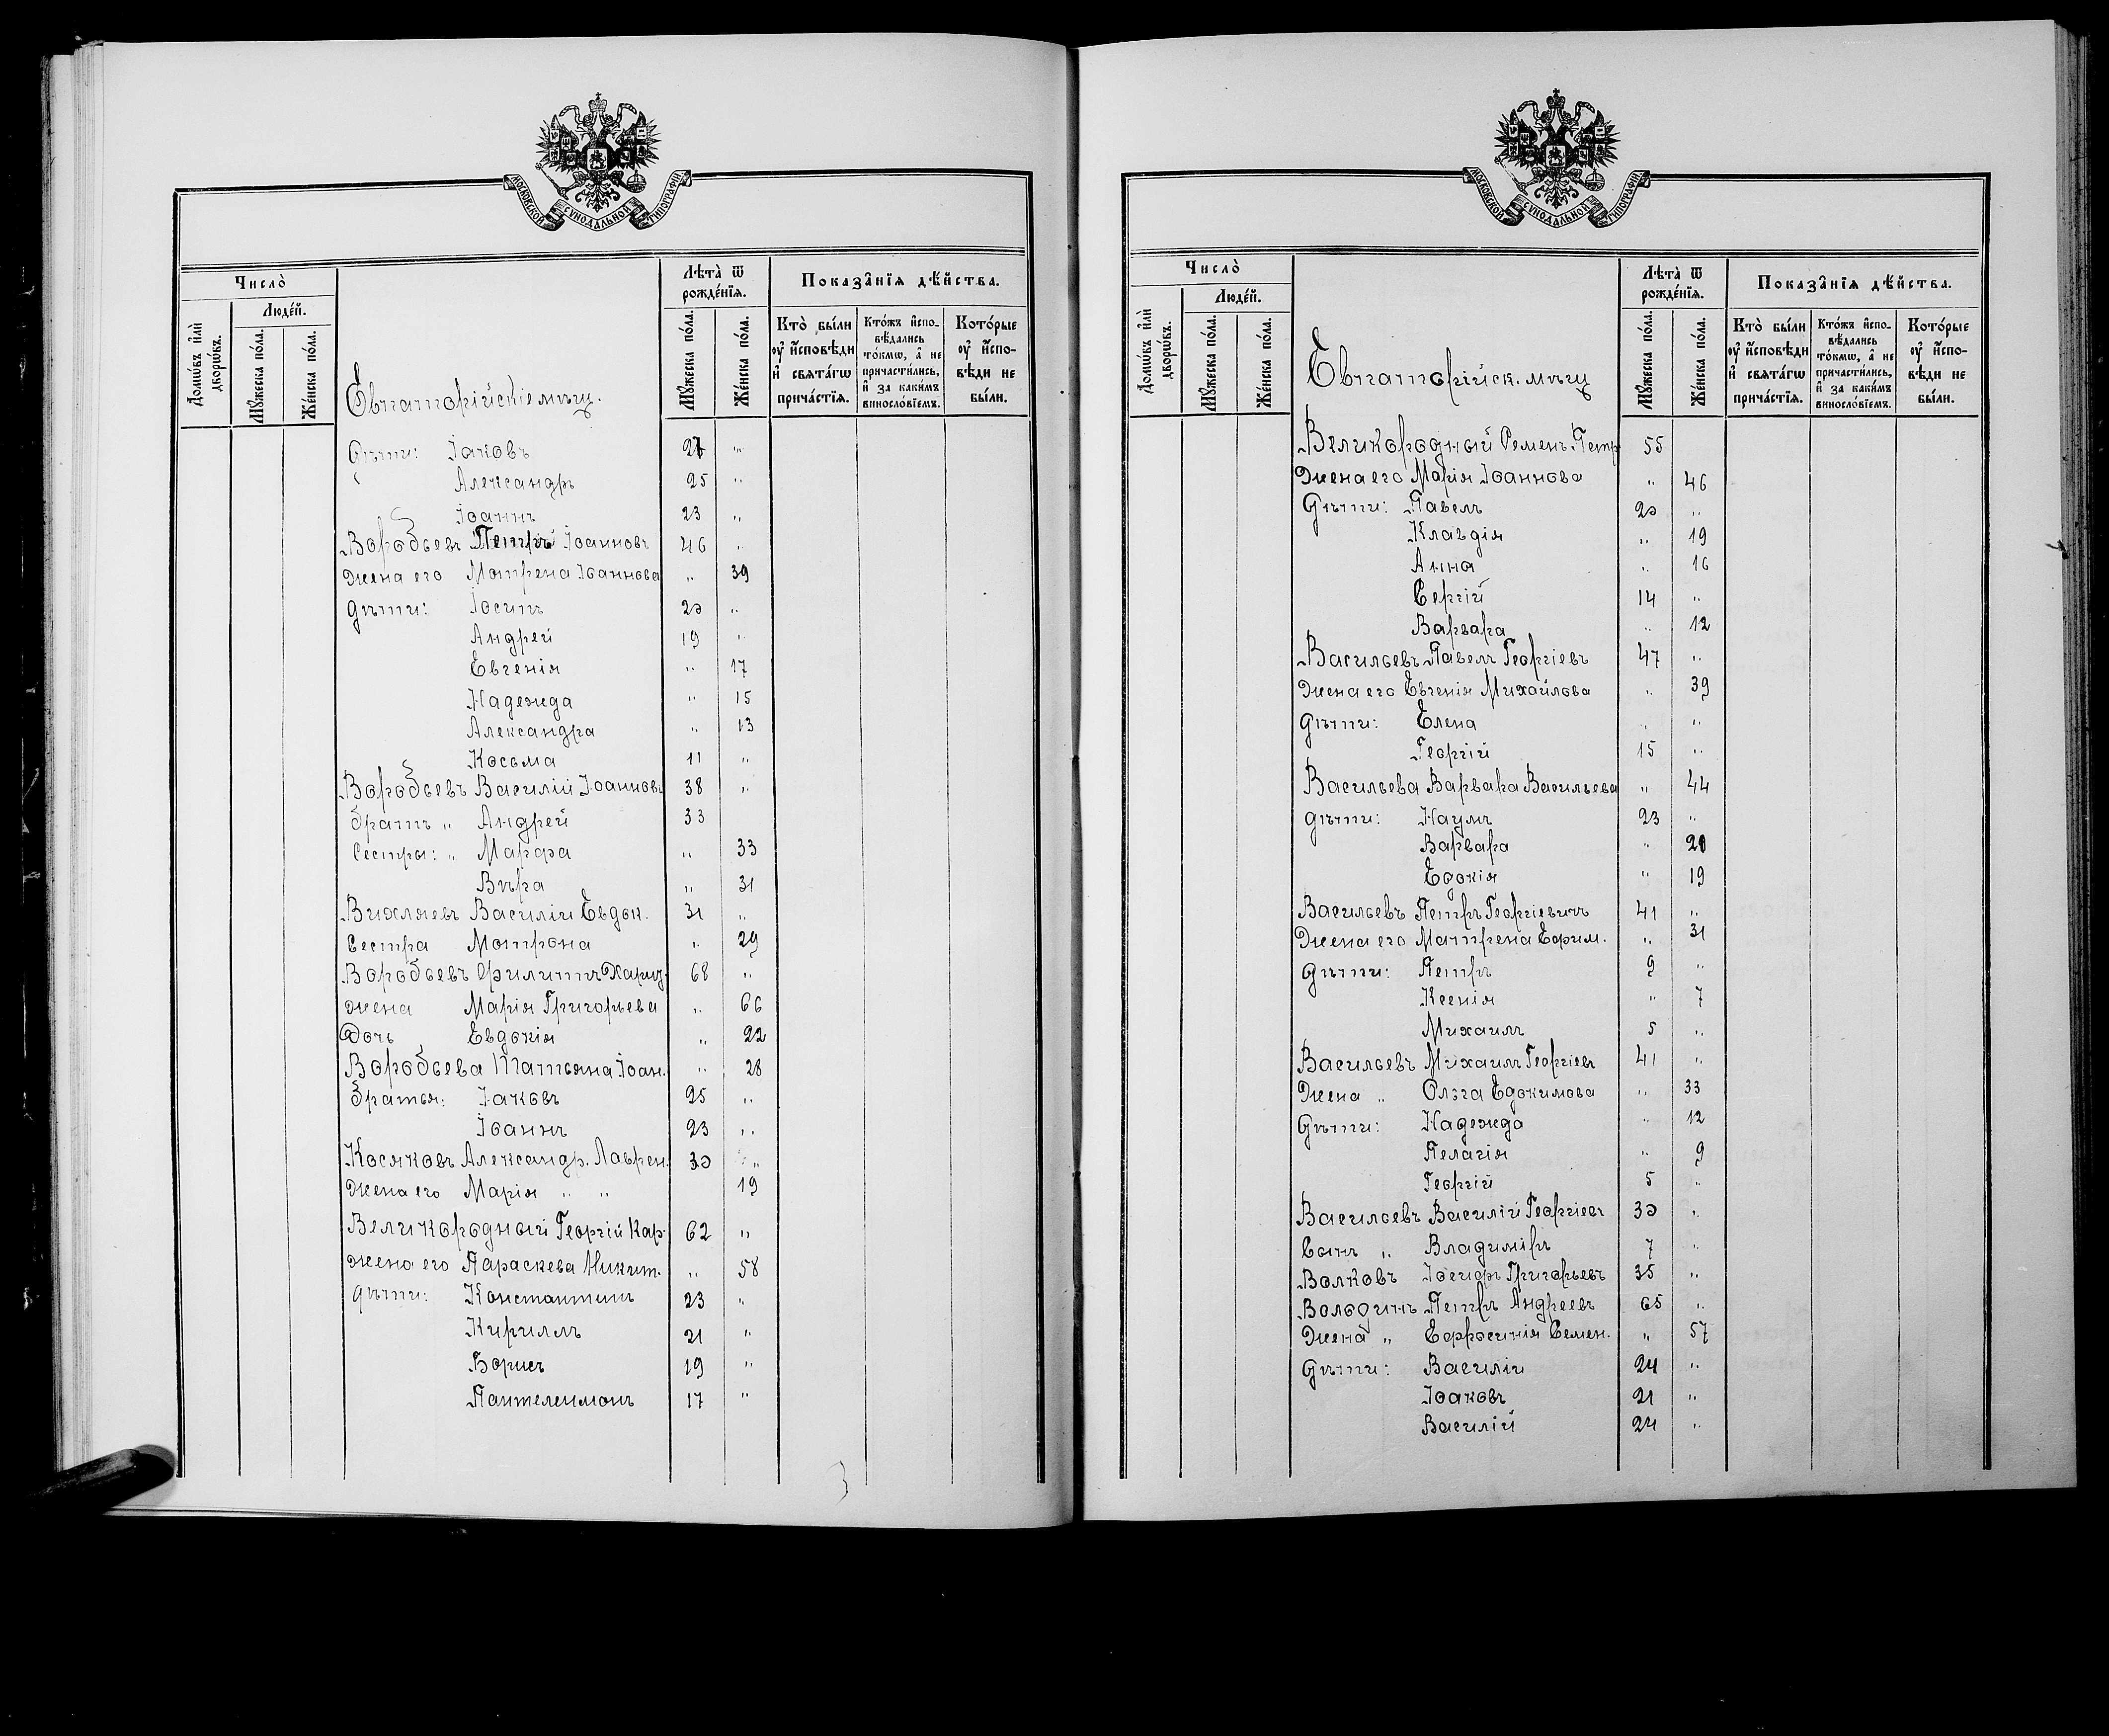 МОСКОВСКОЙ СѴНОДАЛЬНОЙ ТИПОГРАФІИ
Число̀
Домѡ́въ и҆лѝ дворѡ́въ.
Люде́й.
Мꙋ́жеска по́ла.
Же́нска по́ла.
Евпаторійскіе мѣщ.
Лѣта̀ ѿ рожде́нїѧ.
Мꙋ́жеска по́ла.
Же́нска по́ла.
Показа̑нїѧ дѣ́йства.
Кто̀ бы́ли ᲂу҆ и҆́сповѣди и҆ свѧта́гѡ прича́стїѧ.
Кто́жъ и҆спо-вѣ́дались то́кмѡ, а҆ не причасти́лись, и҆ за каки́мъ виносло́вїемъ.
Кото́рые ᲂу҆ и҆́спо-вѣди не бы́ли.
Дѣти: Іаковъ 27 "
Александръ 25 "
Іоаннъ 23 "
Воробьевъ Петръ Іоанновъ 46 "
Жена его Мотрена Іоаннова " 39
Дѣти: Іосипъ 20 "
Андрей 19 "
Евгенія " 17
Надежда " 15
Александра " 13
Косьма 11 "
Воробьевъ Василій Іоанновъ 38 "
братъ " Андрей 33
Сестры: " Марфа " 33
Вѣра " 31
Вихляевъ Василій Евдок. 31 "
Сестра Мотрона " 29
Воробьевъ Филиппъ Харит. 68 "
жена Марія Григорьева " 66
Дочь Евдокія " 22
Воробьева Татьяна Іоан. " 28
братья: Іаковъ 25 "
Іоаннъ 23 "
Косяковъ Александр. Лаврен. 30 "
Жена его Марія " " 19
Великородный Георгій Кар. 62 "
Жена его Параскева Никит. " 58
Дѣти: Константинъ 23 "
Кириллъ 21 "
Борисъ 19 "
Пантелеимонъ 17 "
3
МОСКОВСКОЙ СѴНОДАЛЬНОЙ ТИПОГРАФІИ
Число̀
Домѡ́въ и҆лѝ дворѡ́въ.
Люде́й.
Мꙋ́жеска по́ла.
Же́нска по́ла.
Евпаторійск. мѣщ
Лѣта̀ ѿ рожде́нїѧ.
Мꙋ́жеска по́ла.
Же́нска по́ла.
Показа̑нїѧ дѣ́йства.
Кто̀ бы́ли ᲂу҆ и҆́сповѣди и҆ свѧта́гѡ прича́стїѧ.
Кто́жъ и҆спо-вѣ́дались то́кмѡ, а҆ не причасти́лись, и҆ за каки́мъ виносло́вїемъ.
Кото́рые ᲂу҆ и҆́спо-вѣди не бы́ли.
Великородный Семенъ Петр 55
Жена его Марія Іоаннова " 46
Дѣти: Павелъ 20 "
Клавдія " 19
Анна " 16
Сергій 14 "
Варвара " 12
Васильевъ Павелъ Георгіевъ 47 "
Жена его Евгенія Михайлова " 39
Дѣти: Елена " "
Георгій 15 "
Васильева Варвара Васильева " 44
Дѣти: Наумъ 23 "
Варвара " 20
Едокія " 19
Васильевъ Петръ Георгіевичъ 41 "
Жена его Матрена Ефим. " 31
Дѣти: Петръ 9 "
Ксенія " 7
Михаилъ 5 "
Васильевъ Михаилъ Георгіевъ 41 "
Жена " Ольга Едокимова " 33
Дѣти: Надежда " 12
Пелагія " 9
Георгій 5 "
Васильевъ Василій Георгіевъ 30 "
Сынъ " Владиміръ 7 "
Волковъ Іосифъ Григорьевъ 35 "
Вольдинъ Петръ Андреевъ 65 "
Жена " Ефросинія Семен. " 57
Дѣти: Василій 24 "
Іоаковъ 21 "
Василій 24 "